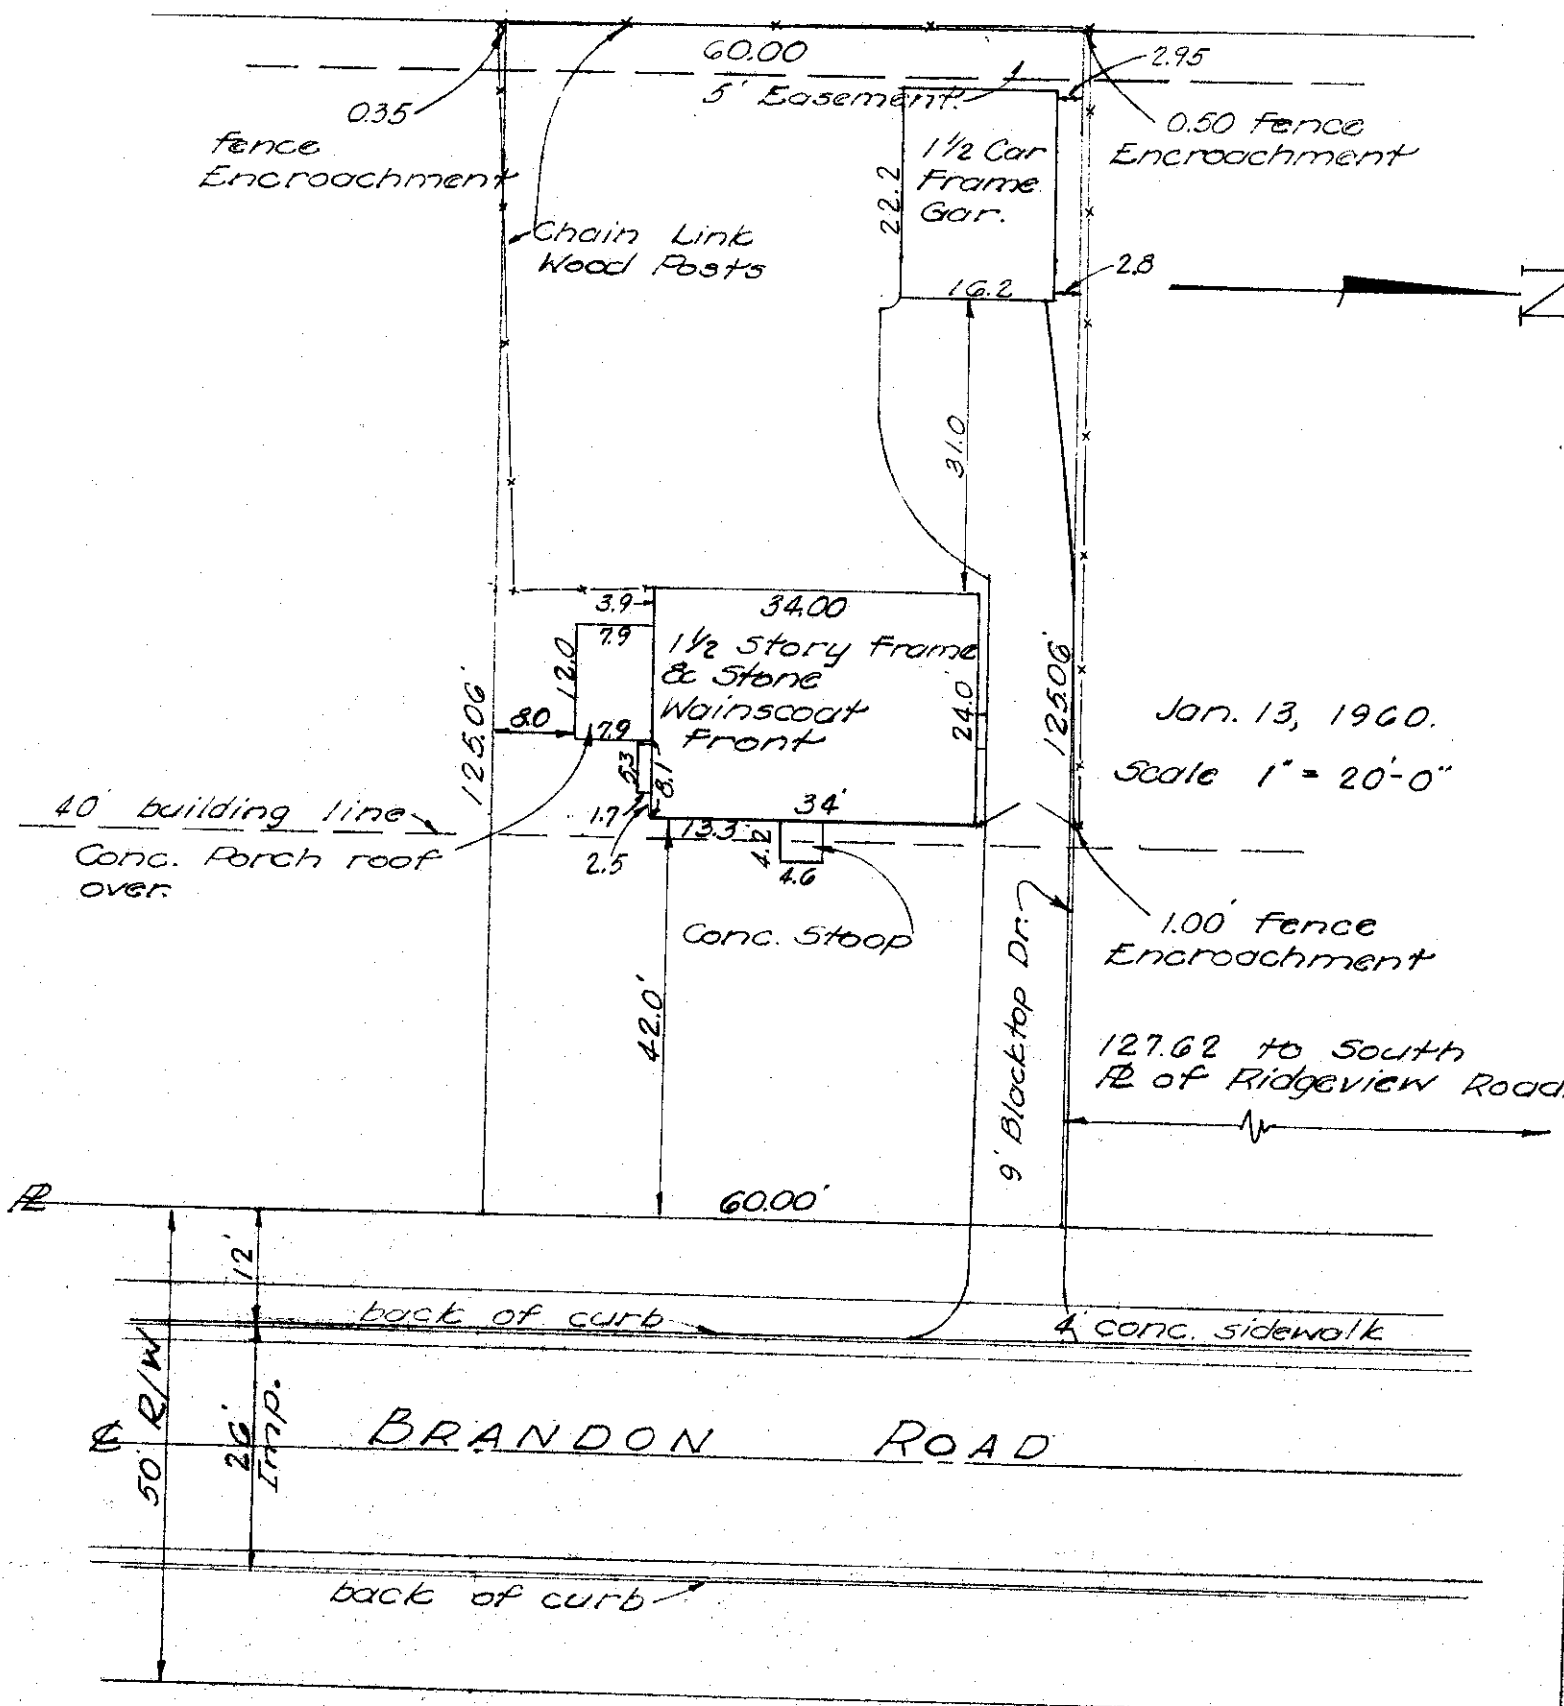 60.00
2.95
5' Easement
0.35
fence
Encroachment
0.50 fence
Encroachment
1 1/2 Car
Frame
Gar.
22.2
Chain Link
Wood Posts
16.2
2.8
N
31.0
3.9
34.00
7.9
1 1/2 Story Frame
& Stone
Wainscoat
Front
12.0
24.0'
125.06'
125.06'
8.0
7.9
Jan. 13, 1960.
Scale 1" = 20'-0"
5.3
8.1
40' building line
1.7
34'
13.3
4.2
Conc. Porch roof
over.
2.5
4.6
Conc. Stoop
1.00' fence
Encroachment
9' Blacktop Dr.
42.0'
127.62 to South
PL of Ridgeview Road.
PL
60.00'
12'
back of curb
4' conc. sidewalk
50' R/W
26'
Imp.
CL
BRANDON ROAD
back of curb